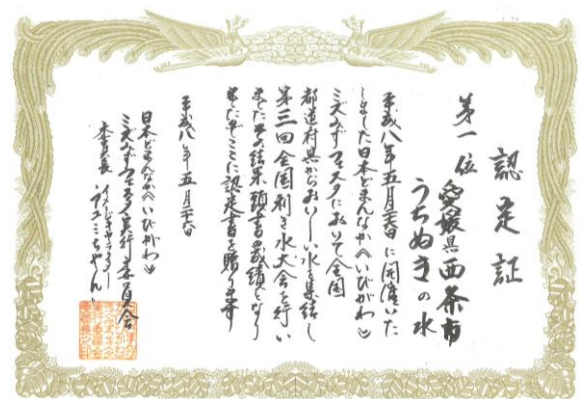 認定証
第一位
愛媛県西条市
うちぬきの水
平成八年五月二六日に開演いた
しました日本どまんなかへいびがわ
ミズみずフェスタにおいて全国
都道村県からおいしい水を集結し
第三回全国利き水大会を行い
ました その結果頭書の成績となり
ましたのでここに認定書を贈ります
平成八年五月二六日
日本どまんなかへいびがわ
ミズみずフェスタ実行委員会